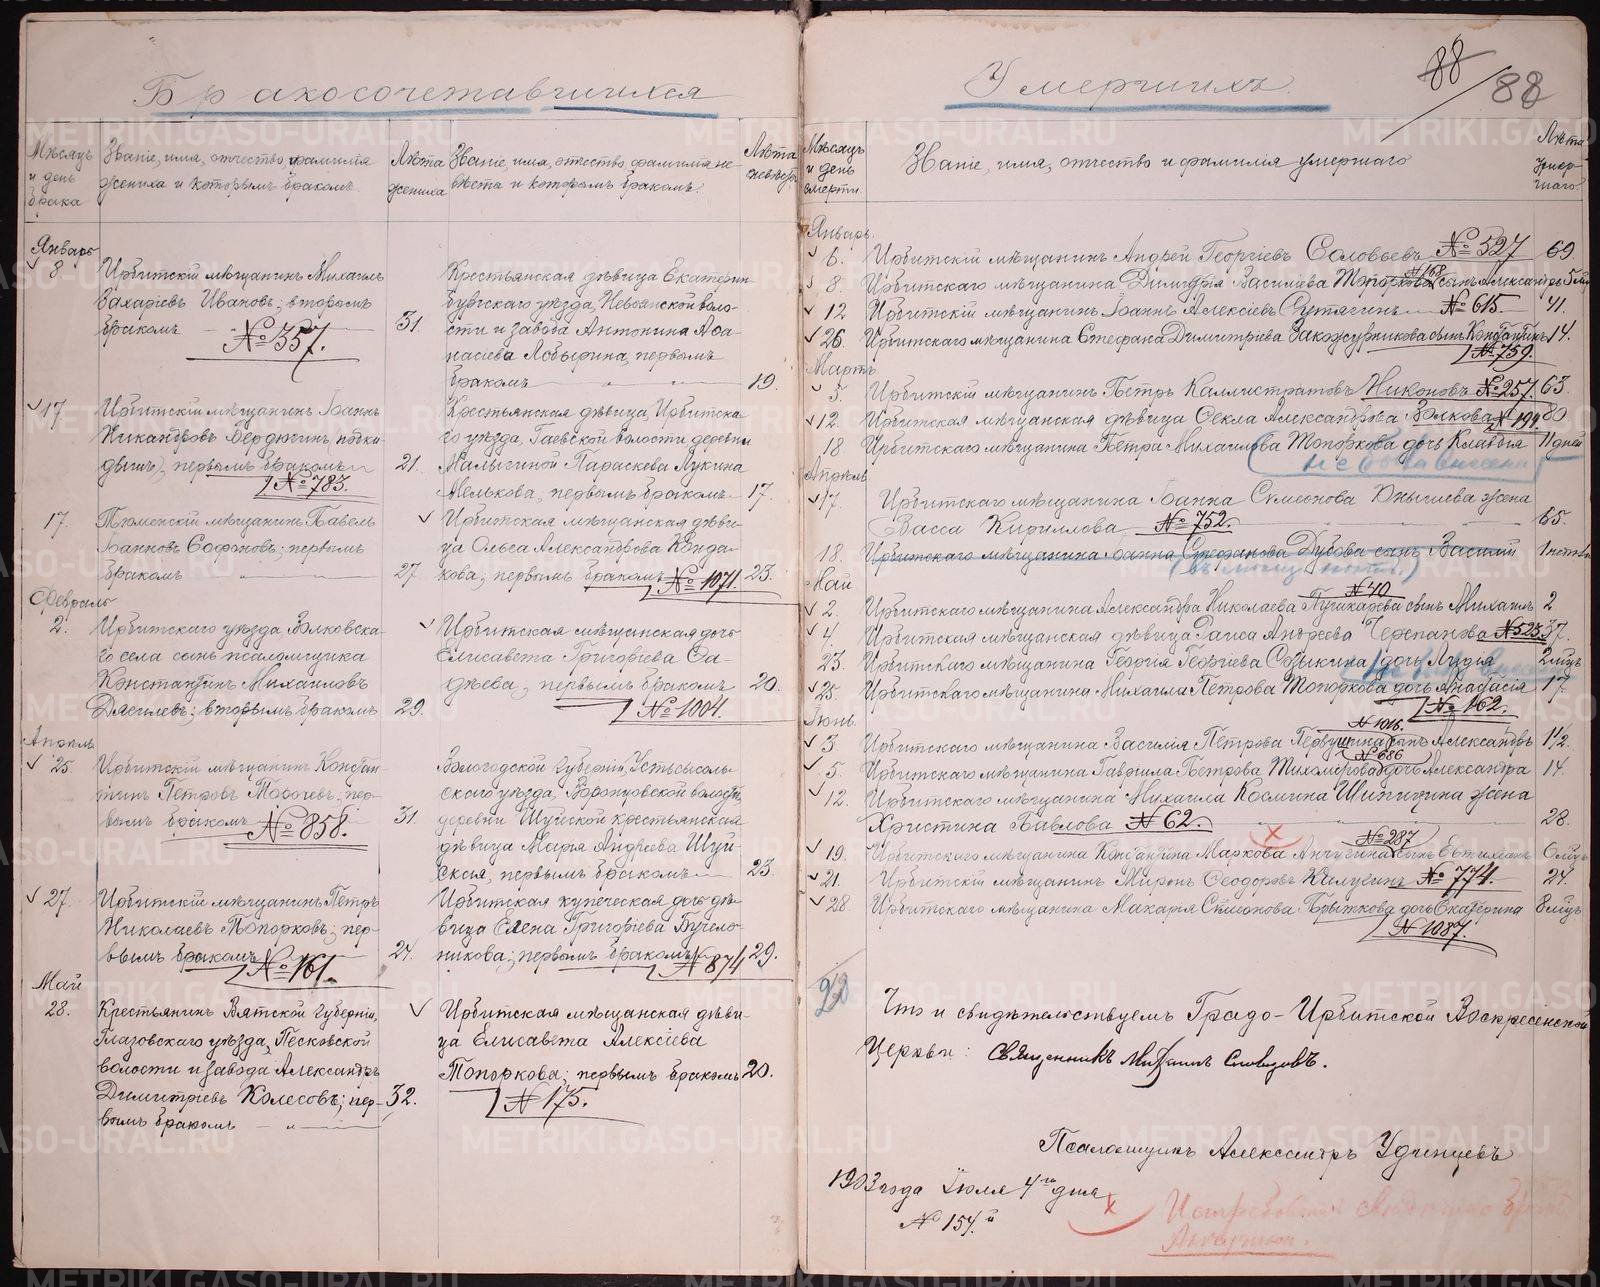 Бракосочетавшихся
Мѣсяцъ и день брака
Званіе, имя, отчество фамилія жениха и которымъ бракомъ.
Лѣта жениха
Званіе, имя, отчество, фамилія невѣста и которымъ бракомъ.
Лѣта невѣсты
Январь
8.
Ирбитскій мѣщанинъ Михаилъ
Захаріевъ Ивановъ; вторымъ
бракомъ
31.
№ 357.
Крестьянская дѣвица Екатерин
бургскаго уѣзда, Невьянской воло-
сти и завода Антонина Афа
насіева Лобырина, первымъ
бракомъ 19.
17
Ирбитскій мѣщанинъ Іоаннъ
Никандровъ Бердюгинъ (подки
дышъ), первымъ бракомъ 21.
№ 783.
Крестьянская дѣвица, Ирбитска
го уѣзда, Гаевской волости деревни
Малыгиной Параскева Лукина
Мелькова, первымъ бракомъ 17.
17.
Тюменскій мѣщанинъ Павелъ
Іоанновъ Софоновъ; первымъ
бракомъ 27.
Ирбитская мѣщанская дѣви-
ца Ольга Александрова Конда-
кова; первымъ бракомъ № 1071. 23.
Февраль
2.
Ирбитскаго уѣзда, Волковска-
го села сынъ псаломщика
Константинъ Михаиловъ
Дягилевъ; вторымъ бракомъ 29.
Ирбитская мѣщанская дочь
Елисавета Григоріева Фа-
дѣева; первымъ бракомъ 20.
№ 1004.
Апрѣль
25.
Ирбитскій мѣщанинъ Констан-
тинъ Петровъ пер-
вымъ бракомъ 31.
№ 858.
Вологодской Губерніи, Устьсысоль-
скаго уѣзда, Воронцовской волости,
деревни Шуйской крестьянская
дѣвица Марія Андреева Шуй-
ская, первымъ бракомъ 23.
27.
Ирбитскій мѣщанинъ Петръ
Николаевъ Топорковъ; пер-
вымъ бракомъ 24.
№ 161.
Ирбитская купеческая дочь дѣ-
вица Елена Григоріева Бучель-
никова; первымъ бракомъ № 874 29.
Май
28.
Крестьянинъ Вятской Губерніи,
Глазовскаго уѣзда, Песковской
волости и завода Александръ
Димитріевъ Колесовъ; пер-
вымъ бракомъ 32.
Ирбитская мѣщанская дѣви-
ца Елисавета Алексіева
Топоркова; первымъ бракомъ 20.
№ 175.
Умершихъ.
88
88
Мѣсяцъ и день смерти.
Званіе, имя, отчество и фамилія умершаго
Лѣта умер-шаго
Январь.
6. Ирбитскій мѣщанинъ Андрей Георгіевъ Соловьевъ № 527 69
8. Ирбитскаго мѣщанина Димитрія Василіева Топоркова сынъ Александръ 5
№ 168
12 Ирбитскій мѣщанинъ Іоаннъ Алексіевъ Сутягинъ № 615. 41.
26. Ирбитскаго мѣщанина Стефана Димитріева Закожурникова сынъ Константинъ 14.
№ 759.
Мартъ
5. Ирбитскій мѣщанинъ Петръ Каллистратовъ Никоновъ № 257. 63.
12. Ирбитская мѣщанская дѣвица Фекла Александрова Волкова № 194 80
18. Ирбитскаго мѣщанина Петра Михаилова Топоркова дочь Клавдія 11 дней
не была внесена
Апрѣль
17. Ирбитскаго мѣщанина Іоанна Симеонова Юнышева жена
Васса Кириллова № 752. 65.
18. Ирбитскаго мѣщанина Іоанна Стефанова Дубова сынъ Василій
Май
№ 40
2. Ирбитскаго мѣщанина Александра Николаева Пушкарева сынъ Михаилъ 2
4. Ирбитская мѣщанская дѣвица Раиса Андреева Черепанова № 523 37.
23. Ирбитскаго мѣщанина Георгія Георгіева Созыкина дочь Лидія 2 мѣц
25. Ирбитскаго мѣщанина Михаила Петрова Топоркова дочь Анастасія 17.
№ 162.
Іюнь.
№ 1016.
3. Ирбитскаго мѣщанина Василія Петрова Первушина сынъ Александръ 1½.
№ 686
5. Ирбитскаго мѣщанина Гавріила Петрова Тихомирова дочь Александра 14.
12. Ирбитскаго мѣщанина Михаила Космина Шипицина жена
Христина Павлова № 62. 28.
№ 287
19. Ирбитскаго мѣщанина Константина Маркова Анчугина сынъ Евтихіанъ 6 мѣц
21. Ирбитскій мѣщанинъ Миронъ Феодоровъ Калугинъ № 774. 24.
28 Ирбитскаго мѣщанина Макарія Симеонова Брыжкова дочь Екатерина 8 мѣц
№ 1087.
Что и свидѣтельствуемъ Градо-Ирбитской Воскресенской
Церкви: Священникъ Михаилъ Словцовъ.
Псаломщикъ Александръ Удинцевъ
1903 года Іюля 4го дня
№ 154.й
METRIKI.GASO-URAL.RU